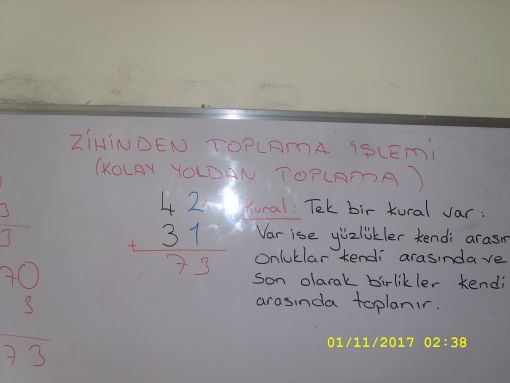 ZİHİNDEN TOPLAMA İŞLEMİ
(KOLAY YOLDAN TOPLAMA)
3
3
70
3
73
42
31
+
73
Kural: Tek bir kural var:
Var ise yüzlükler kendi arasın
onluklar kendi arasında ve
son olarak birlikler kendi
arasında toplanır.
01/11/2017 02:38